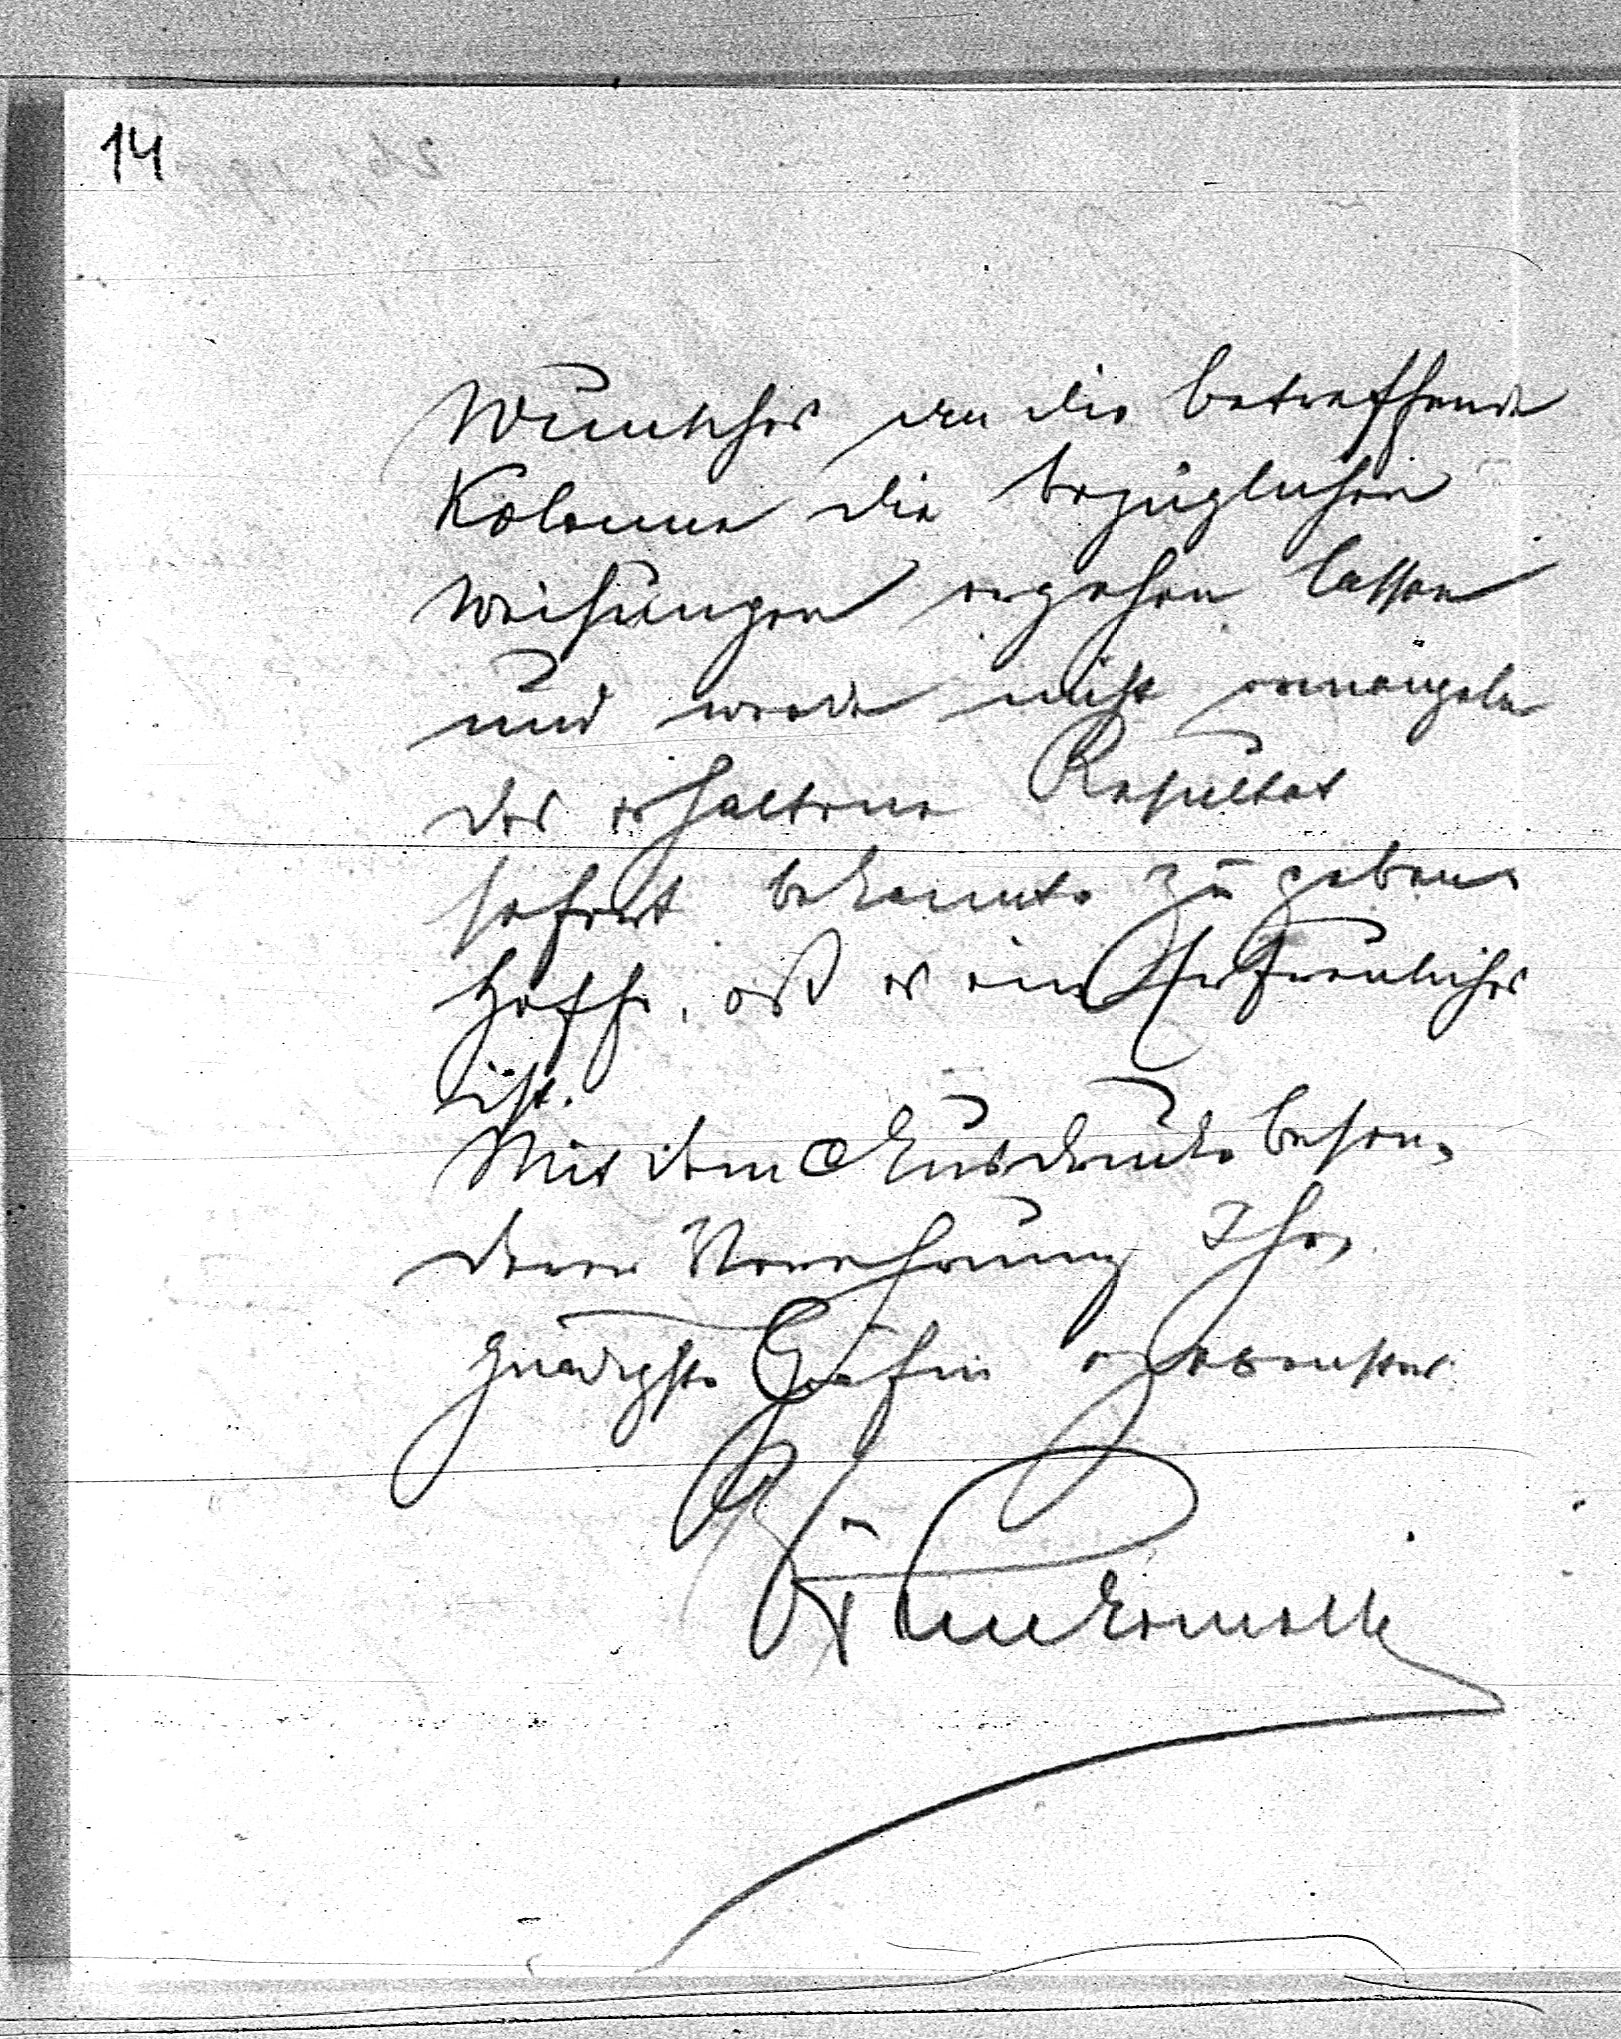 14
Wunsches an die betreffende
Kolonne die bezüglichen
Weisungen ergehen lassen
und werde nicht ermangeln
das erhaltene Resultat
sofort bekannt zu geben
hoffe, daß es ein Erfreuliches
ist.
Mit dem Ausdrucke beson-
derer Verehrung Ihr,
gnädigste Gräfin ergebenster